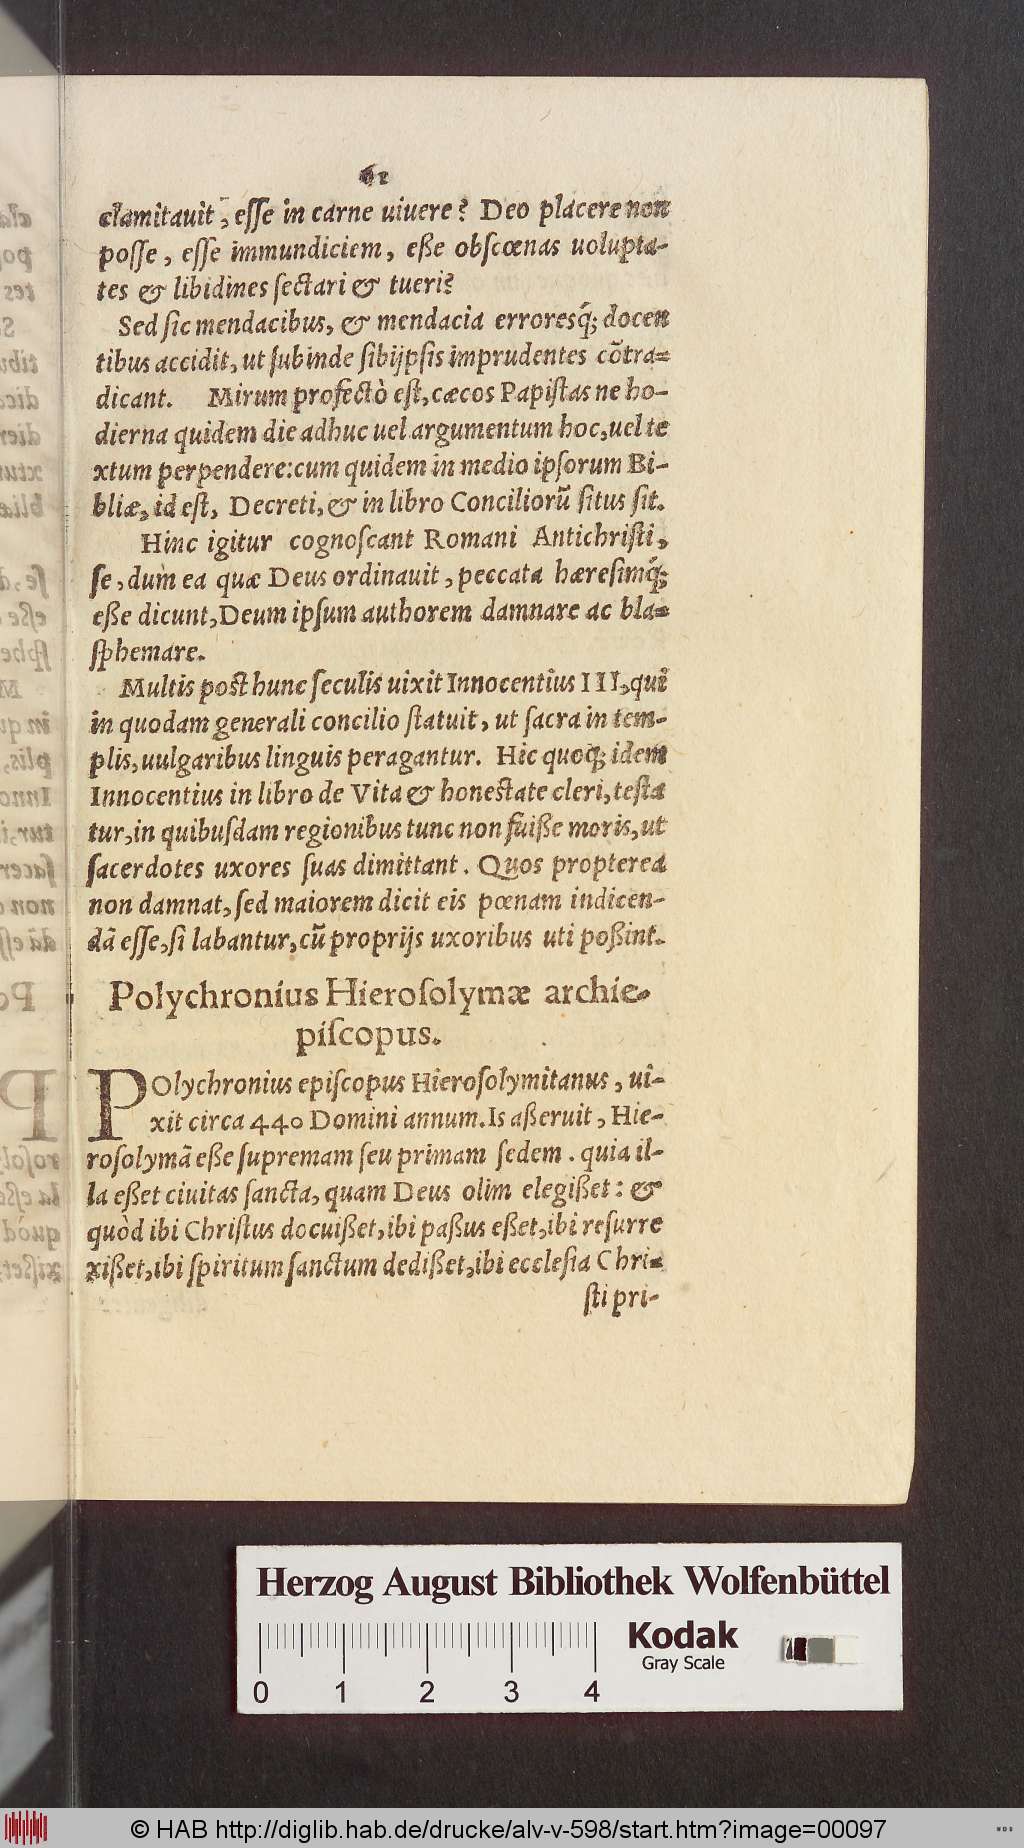 61
clamitauit, eſſe in carne uiuere? Deo placere non
poſſe, eſſe immundiciem, eße obſcœnas uolupta-
tes & libidines ſectari & tueri?
Sed ſic mendacibus, & mendacia erroresq́; docen
tibus accidit, ut ſubinde ſibijpſis imprudentes cōtra=
dicant. Mirum profectò eſt, cæcos Papiſtas ne ho-
dierna quidem die adhuc uel argumentum hoc, uel te
xtum perpendere: cum quidem in medio ipſorum Bi-
bliæ, id eſt, Decreti, & in libro Conciliorū ſitus ſit.
Hinc igitur cognoſcant Romani Antichriſti,
ſe, dum ea quæ Deus ordinauit, peccata hæreſimq́;
eße dicunt, Deum ipſum authorem damnare ac bla=
ſphemare.
Multis poſt hunc ſeculis uixit Innocentius III, qui
in quodam generali concilio ſtatuit, ut ſacra in tem-
plis, uulgaribus linguis peragantur. Hic quoq; idem
Innocentius in libro de Vita & honeſtate cleri, teſta
tur, in quibuſdam regionibus tunc non fuiße moris, ut
ſacerdotes uxores ſuas dimittant. Quos propterea
non damnat, ſed maiorem dicit eis pœnam indicen-
dā eſſe, ſi labantur, cū proprijs uxoribus uti poßint.
Polychronius Hieroſolymæ archie-
piſcopus.
POlychronius epiſcopus Hieroſolymitanus, ui-
xit circa 440 Domini annum. Is aßeruit, Hie-
roſolymā eße ſupremam ſeu primam ſedem. quia il-
la eßet ciuitas ſancta, quam Deus olim elegißet: &
quòd ibi Chriſtus docuißet, ibi paßus eßet, ibi reſurre
xißet, ibi ſpiritum ſanctum dedißet, ibi eccleſia Chri=
ſti pri-
Herzog August Bibliothek Wolfenbüttel
Kodak
Gray Scale
0 1 2 3 4
© HAB http://diglib.hab.de/drucke/alv-v-598/start.htm?image=00097